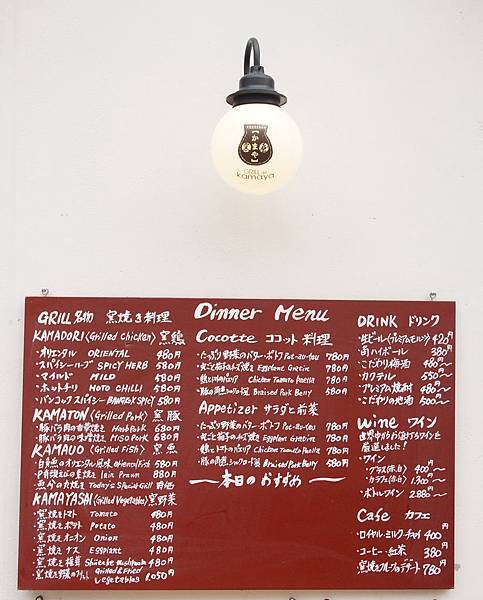 かまや
GRILL
kamaya
GRILL 名物 窯焼き料理
KAMADORI (Grilled Chicken) 窯鶏
・オリエンタル ORIENTAL 480円
・スパイシーハーブ SPICY HERB 580円
・マイルド MILD 480円
・ホットチリ HOTO CHILLI 480円
・バンコクスパイシー BANGKOK SPICY 580円
KAMATON (Grilled Pork) 窯豚
・豚バラ肉の香草焼き Herb Pork 680円
・豚バラ肉の味噌焼き MISO Pork 680円
KAMAUO (Grilled Fish) 窯魚
・白身魚のオリエンタル風味 Oriental Fish 580円
Prawn 880円
Today's Special Grill 時価
KAMAYASAI (Grilled Vegetables) 窯野菜
・窯焼きトマト Tomato 480円
・窯焼きポテト Potato 480円
・窯焼きオニオン Onion 480円
・窯焼きナス Eggplant 480円
・窯焼き椎茸 Shiitake mushroom 480円
Grilled & Fried vegetables 1,050円
Dinner Menu
Cocotte ココット料理
・たっぷり野菜のバター・ポトフ Pot-au-feu 780円
Eggplant Gratin 780円
Chicken Tomato Paella 780円
Braised Pork Berry 580円
Appetizer サラダと前菜
・たっぷり野菜のバター・ポトフ Pot-au-feu 780円
Eggplant Gratine 580円
Chicken Tomato Paella 780円
Braised Pork Berry 580円
―本日のおすすめ―
DRINK ドリンク
・生ビール(プレミアムモルツ) 420円
・角ハイボール 380円
・こだわり梅酒 480〜
・カクテル 550〜
・プレミアム焼酎 480〜
・こだわりの地酒 500〜
Wine ワイン
世界中からお届けるワインを
厳選しました!
・ワイン
・グラス(赤白) 400円〜
・カラフェ(赤白) 1,300〜
・ボトルワイン 2,880〜
Cafe カフェ
・ロイヤル・ミルクティー 400円
・コーヒー・紅茶 380円
780円